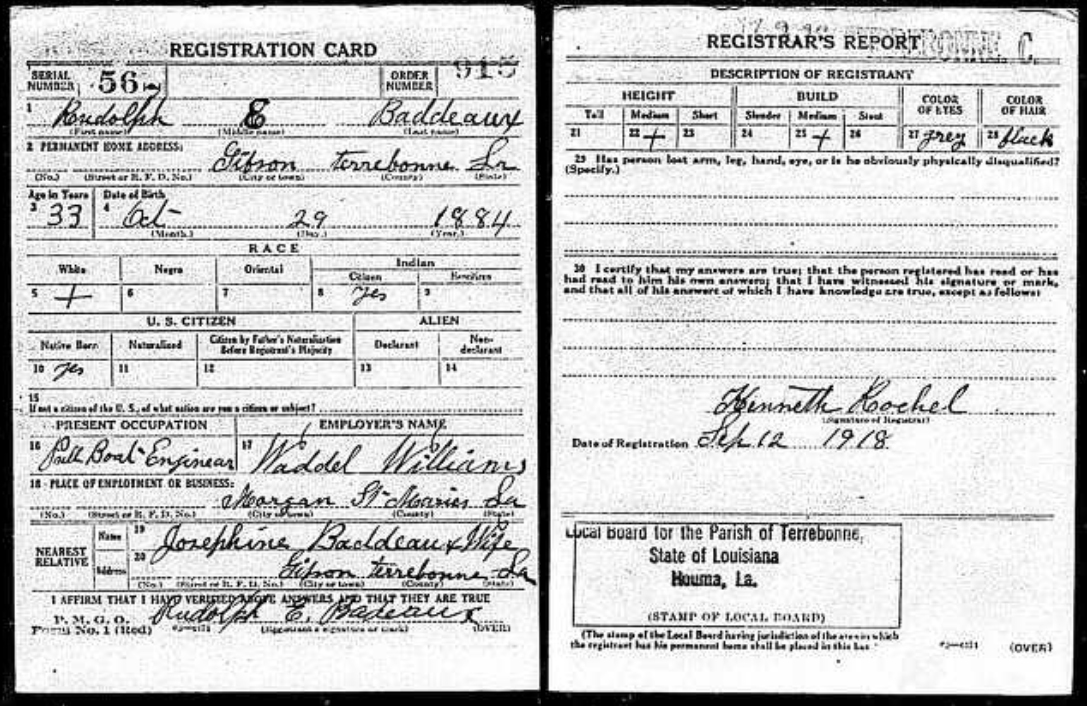 REGISTRATION CARD
SERIAL NUMBER 56 ORDER NUMBER 915
1 Rudolph E Baddeaux
(First name) (Middle name) (Last name)
2 PERMANENT HOME ADDRESS:
Gibson terrebonne La
(No.) (Street or R. F. D. No.) (City or town) (County) (State)
Age in Years Date of Birth
3 33 4 Oct 29 1884
(Month.) (Day.) (Year.)
RACE
White Negro Oriental Indian
Citizen Noncitizen
5 + 6 7 8 yes 9
U. S. CITIZEN ALIEN
Native Born Naturalized Citizen by Father's Naturalization Before Registrant's Majority Declarant Non-declarant
10 yes 11 12 13 14
15
If not a citizen of the U. S., of what nation are you a citizen or subject?
PRESENT OCCUPATION EMPLOYER'S NAME
16 Pull Boat Enginear 17 Waddel Williams
18 PLACE OF EMPLOYMENT OR BUSINESS:
Morgan St Maries La
(No.) (Street or R. F. D. No.) (City or town) (County) (State)
NEAREST RELATIVE Name 19 Josephine Baddeaux Wife
Address 20 Gibson terrebonne La
(No.) (Street or R. F. D. No.) (City or town) (County) (State)
I AFFIRM THAT I HAVE VERIFIED ABOVE ANSWERS AND THAT THEY ARE TRUE
P. M. G. O.
Form No. 1 (Red) Rudolph E. Badeaux
(Registrant's signature or mark) (OVER)
REGISTRAR'S REPORT
DESCRIPTION OF REGISTRANT
HEIGHT BUILD COLOR OF EYES COLOR OF HAIR
Tall Medium Short Slender Medium Stout
21 22 + 23 24 25 + 26 27 grey 28 black
29 Has person lost arm, leg, hand, eye, or is he obviously physically disqualified?
(Specify.)
30 I certify that my answers are true; that the person registered has read or has
had read to him his own answers; that I have witnessed his signature or mark,
and that all of his answers of which I have knowledge are true, except as follows:
Kenneth Kochel
(Signature of Registrar)
Date of Registration Sep 12 1918
Local Board for the Parish of Terrebonne,
State of Louisiana
Houma, La.
(STAMP OF LOCAL BOARD)
(The stamp of the Local Board having jurisdiction of the area in which
the registrant has his permanent home shall be placed in this box
(OVER)